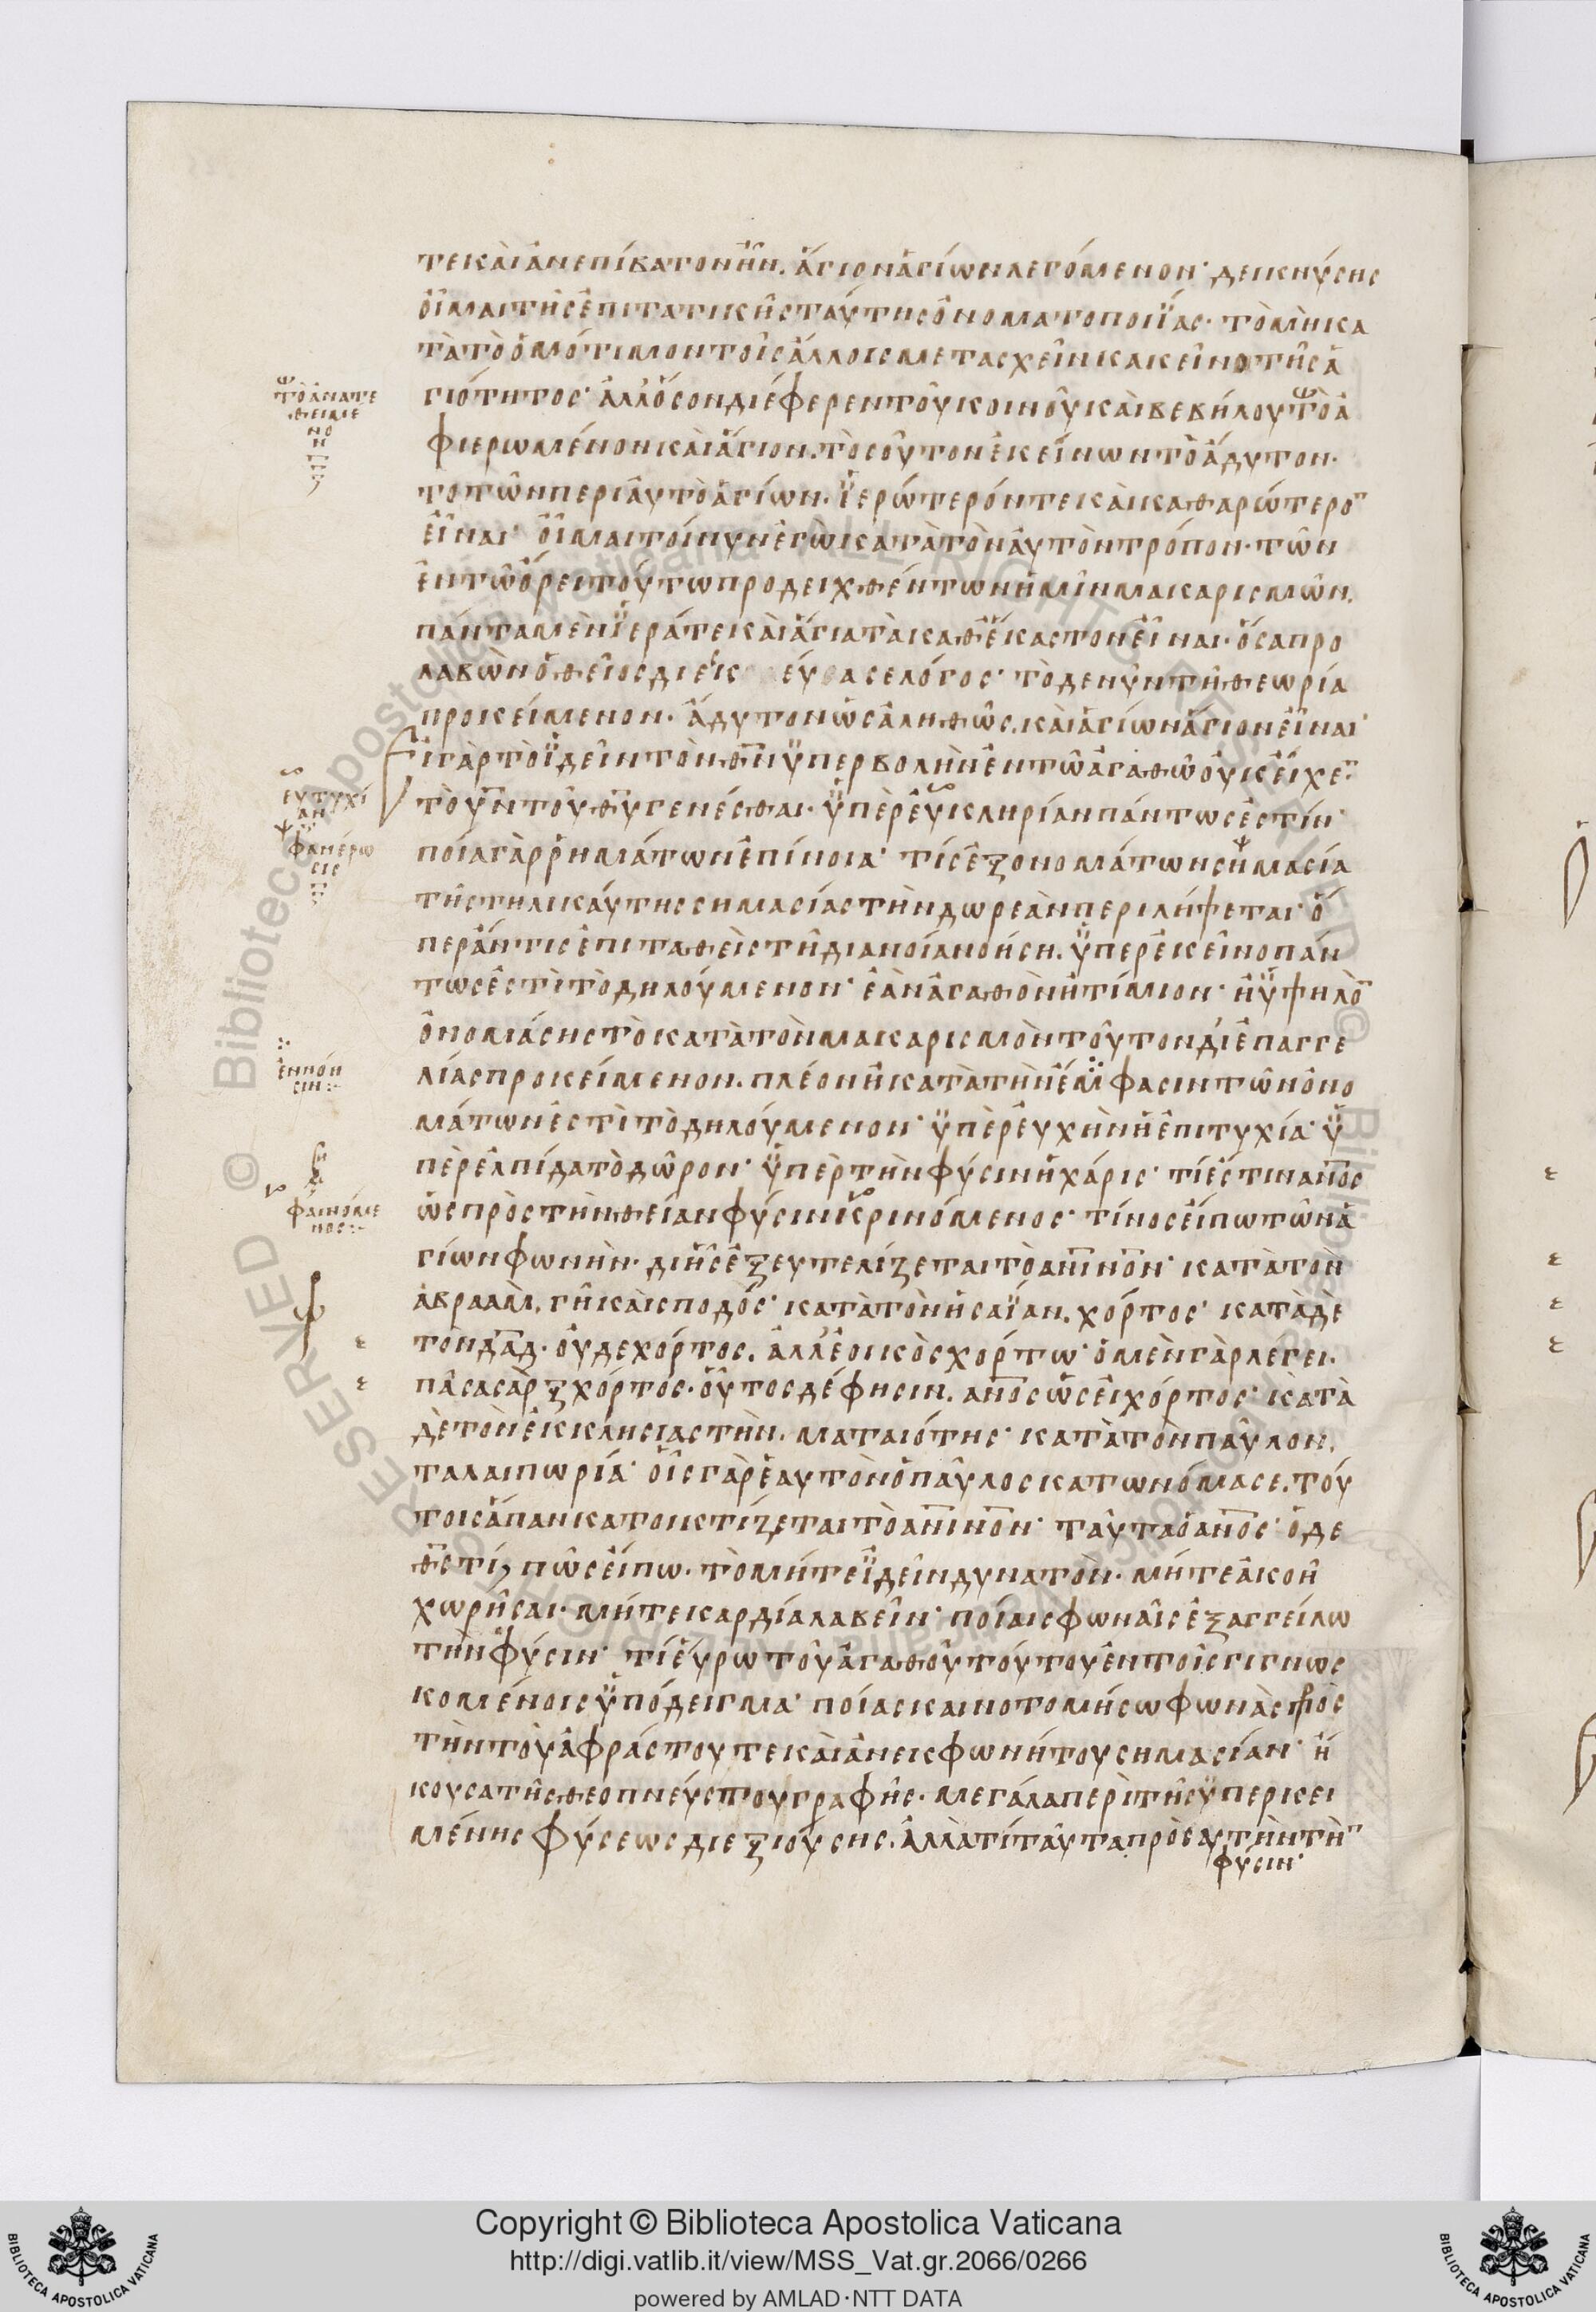 τε καὶ ἀνεπίβατον ἦν. ἅγιον ἁγίων λεγόμενον· δεικνύσης
οἶμαι τῆς ἐπιτατικῆς ταύτης ὀνοματοποιΐας· τὸ μὴ κα
τὰ τὸ ὁμότιμον τοῖς ἄλλοις μετασχεῖν κακεῖνο τῆς ἁ
γιότητος· ἀλλ' ὅσον διέφερεν τοῦ κοινοῦ καὶ βεβήλου τὸ ἀ
φιερωμένον καὶ ἅγιον. τὸσοῦτον ἐκείνων τὸ ἄδυτον·
το τῶν περι αὐτὸ ἁγίων. ἱερώτερόν τε καὶ καθαρώτερο
̅
εἶναι· οἶμαι τοίνυν ἐγὼ κατὰ τὸν αὐτὸν τρόπον· τῶν
ἐν τῶ ὄρει τούτω προδειχθέντων ἡμῖν μακαρισμῶν.
πάντα μὲν ἱερά τε καὶ ἅγια τὰ καθ' ἕκαστον εἶναι· ὅσα προ
λαβὼν ὁ θεῖος διε λόγος· τὸ δε νῦν τῆ θεωρία
προκείμενον· ἄδυτον ὡς ἀληθῶς. καὶ ἁγίων ἅγιον εἶναι·
Εἰ γὰρ τὸ ἰδεῖν τὸν θν ὑπερβολὴν ἐν τῶ ἀγαθῶ οὐκ εἶχε
τὸ υν τοῦ θυ γενέσθαι· ὑπὲρ εὐκληρίαν πάντως ἐστίν·
ποία γὰρ ῥημάτων ἐπίνοια· τίς ἐξ ονομάτων σημασία
τῆς τηλικαύτης σημασίας τὴν δωρεὰν περιλήψεται· ὅ
περ ἄν τις ἐπιταθεὶς τῆ διανοία νοήση. ὑπερ ἐκεῖνο πάν
τως ἐστὶ τὸ δηλούμενον· ἐὰν ἀγαθὸν ἢ τίμιον· ἢ ὑψηλὸ
ὀνομάσης τὸ κατὰ τὸν μακαρισμὸν τοῦτον δι' ἐπαγγε
λίας προκείμενον. πλέον ἢ κατὰ τὴν ἔμφασιν τῶν ὀνο
μάτων ἐστὶ τὸ δηλούμενον· ὑπὲρ εὐχὴν ἡ ἐπιτυχία· ὑ
πὲρ ἐλπίδα τὸ δῶρον· ὑπὲρ τὴν φύσιν ἡ χάρις· τί ἐστιν ανος
ὡς πρὸς τὴν θείαν φύσιν κρινόμενος· τίνος εἴπω τῶν ἁ
γίων φωνὴν· δι' ἧς ἐξευτελίζεται τὸ ανινον· κατὰ τὸν
ἀβραὰμ. γῆ καὶ σποδός· κατὰ τὸν ἡσαΐαν. χόρτος· κατὰ δὲ
τὸν δαδ· οὐδε χόρτος. ἀλλ' ἐοικὸς χόρτω· ὁ μὲν γὰρ λέγει·
πᾶσα σὰρξ χόρτος· οὗτος δέ φησιν. ανος ὡσεὶ χόρτος· κατὰ
δὲ τὸν ἐκκλησιαστὴν. ματαιότης· κατὰ τὸν παῦλον.
ταλαιπωρία· οἷς γὰρ ἑαυτὸν ὁ παῦλος κατωνόμασε. τού
τοις ἅπαν κατοικτίζεται τὸ ανινον· ταῦτα ὁ ανος· ὁ δε
θς τί; πῶς εἴπω· τὸ μήτε ἰδεῖν δυνατὸν· μήτε ἀκοῆ
χωρῆσαι· μήτε καρδία λαβεῖν· ποίαις φωναῖς ἐξαγγείλω
τὴν φύσιν· τί εὕρω τοῦ ἀγαθοῦ τούτου ἐν τοῖς γιγνωσ
κομένοις ὑπόδειγμα· ποίας καινοτομήσω φωνὰς πρὸς
τὴν τοῦ ἀφράστου τε καὶ ἀνεκφωνήτου σημασίαν· ἤ
κουσα τῆς θεοπνεύστου γραφῆς· μεγάλα περὶ τῆς ὑπερκει
μένης φύσεως διεξιούσης. ἀλλὰ τί ταῦτα πρὸς αυτὴν τὴ
φύσιν·
τὸ ἀνατε
θειμέ
νο
ν
εὐτυχί
αν
φανέρω
σις
ἐννόη
σιν:
φαινόμε
νος:
Copyright © Biblioteca Apostolica Vaticana
http://digi.vatlib.it/view/MSS_Vat.gr.2066/0266
powered by AMLAD·NTT DATA